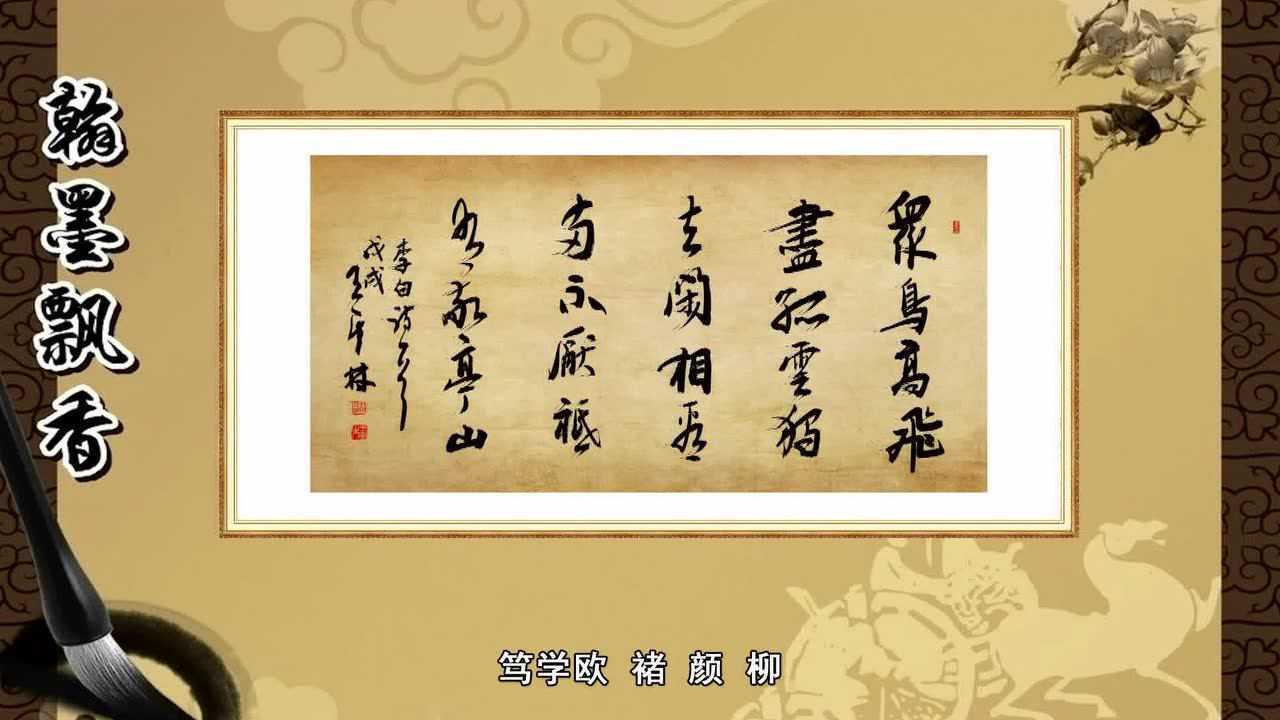 翰墨飘香
眾鳥高飛
盡孤雲獨
去閑相看
两不厭祗
有敬亭山
李白诗一首
戊戌
笃学欧 褚 颜 柳